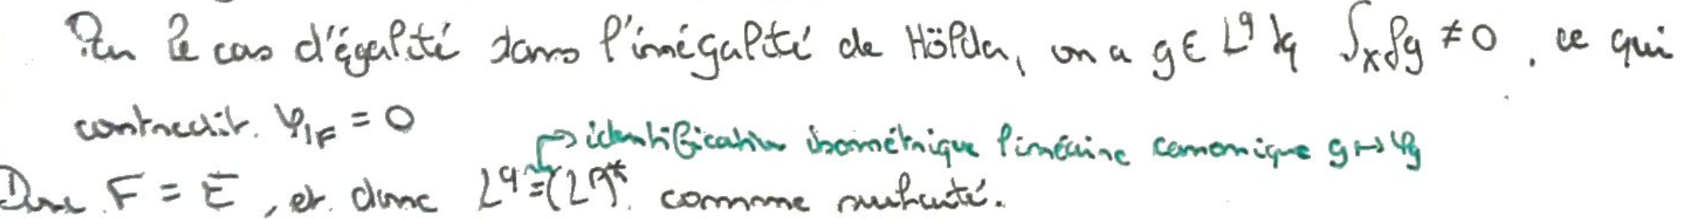 Par le cas d'égalité dans l'inégalité de Hölder, on a g ∈ L^q tq ∫_X fg ≠ 0, ce qui
contredit φ_{|F} = 0
↱ identification isométrique linéaire canonique g ↦ φ_g
Donc F = E, et donc L^q = (L^p)^* comme souhaité.